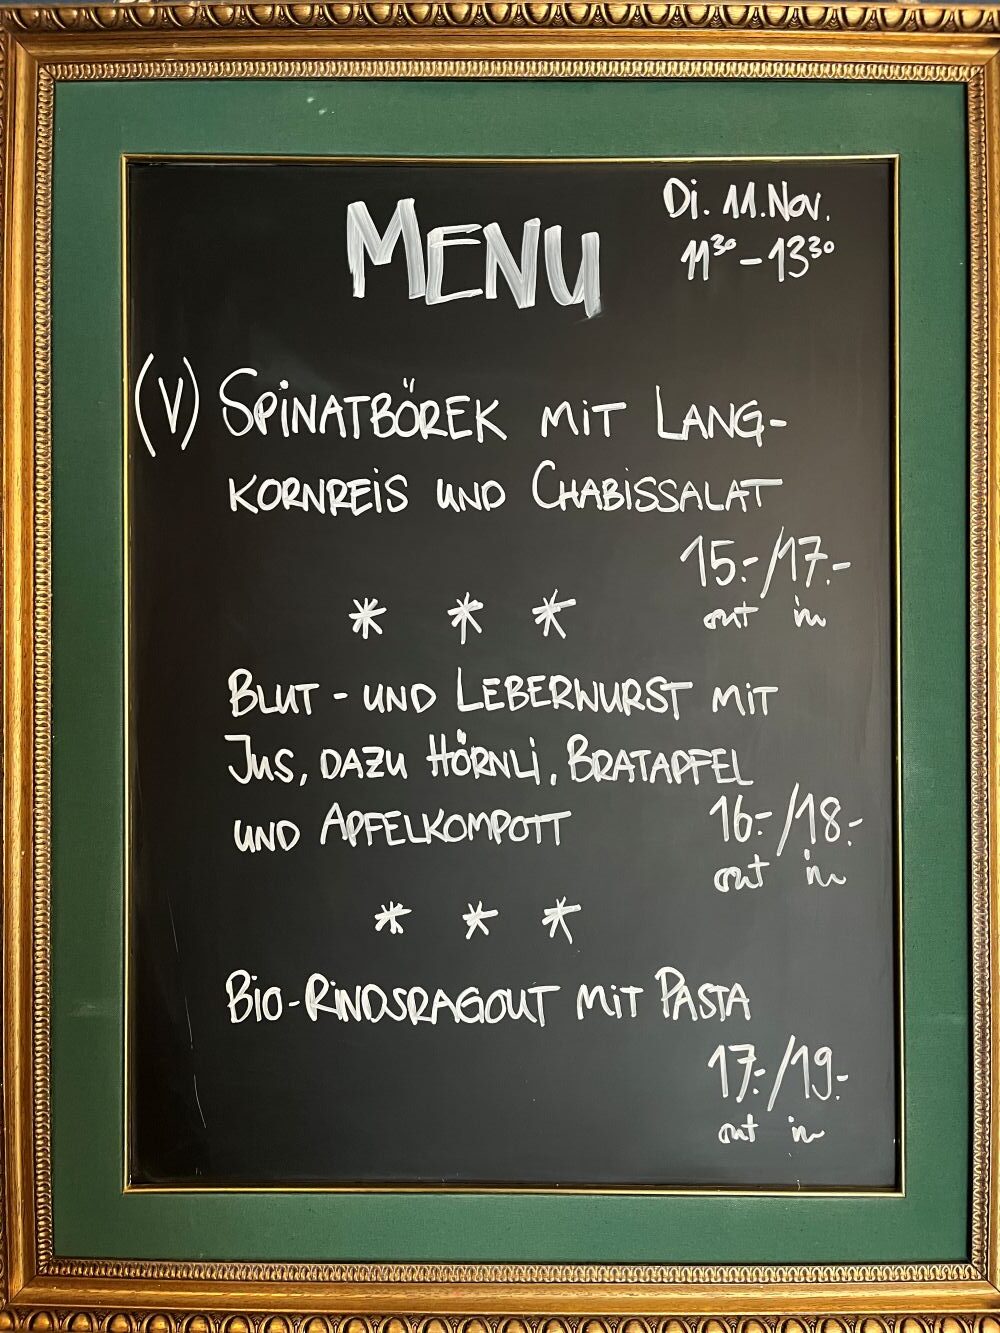 MENU
Di. 11. Nov.
11³⁰ – 13³⁰
(V) SPINATBÖREK MIT LANG-
KORNREIS UND CHABISSALAT
15.-/17.-
out in
* * *
BLUT- UND LEBERWURST MIT
JUS, DAZU HÖRNLI, BRATAPFEL
UND APFELKOMPOTT 16.-/18.-
out in
* * *
BIO-RINDSRAGOUT MIT PASTA
17.-/19.-
out in